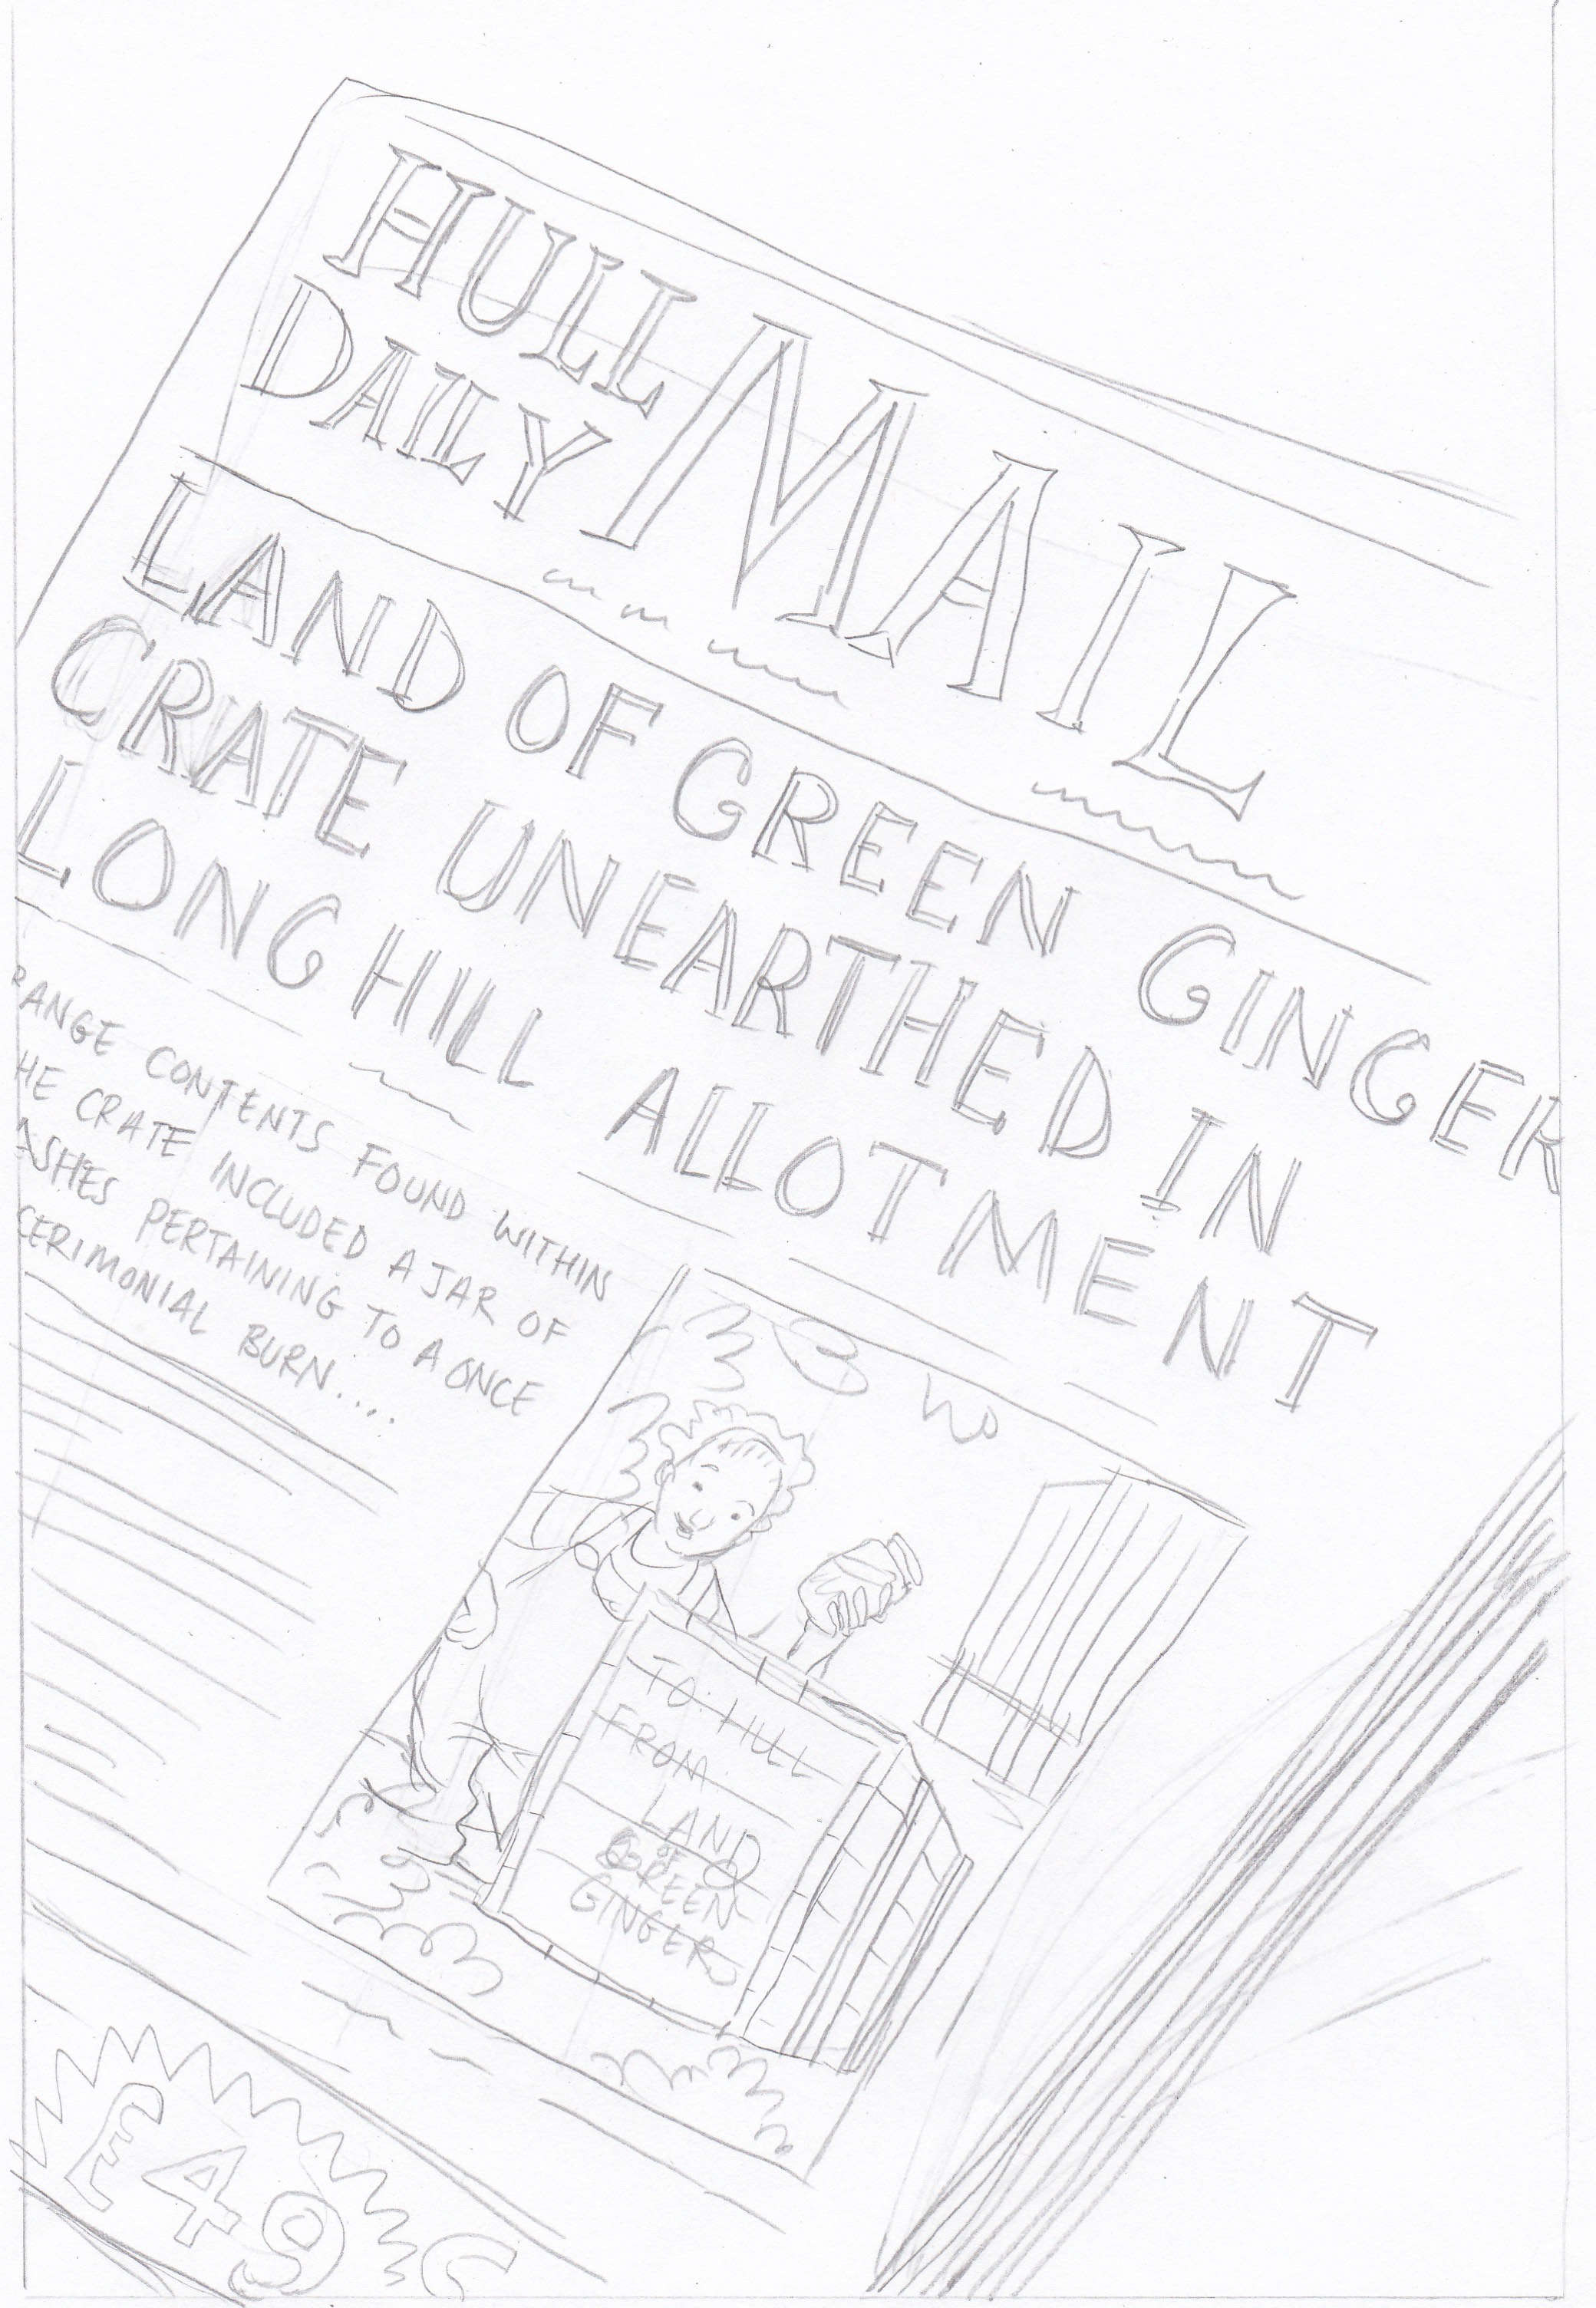 HULL
DAILY
MAIL
LAND OF GREEN GINGER
CRATE UNEARTHED IN
LONG HILL ALLOTMENT
RANGE CONTENTS FOUND WITHIN
HE CRATE INCLUDED A JAR OF
ASHES PERTAINING TO A ONCE
CERIMONIAL BURN....
TO: HULL
FROM
LAND
OF
GREEN
GINGER
£49